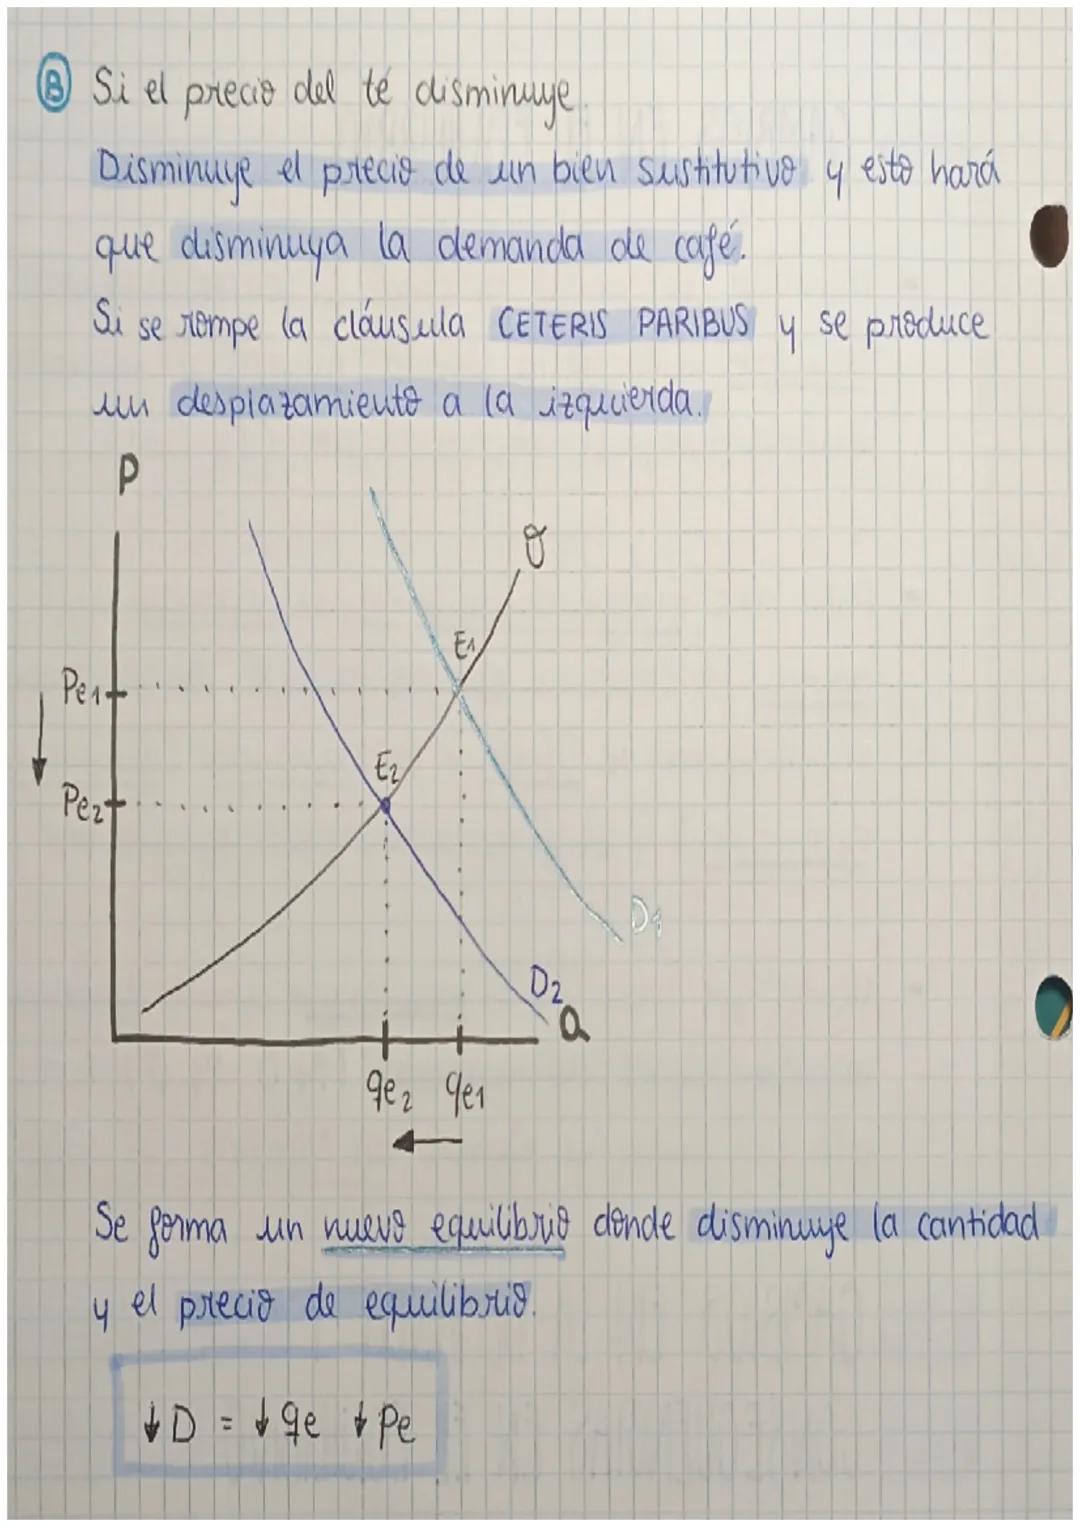 B Si el precio del té disminuye.
Disminuye el precio de un bien sustitutivo y esto hará
que disminuya la demanda de café.
Si se rompe la cláusula CETERIS PARIBUS y se produce
un desplazamiento a la izquierda.
P
O
E1
Pe1
E2
Pe2
D1
D2
Q
qe2 qe1
Se forma un nuevo equilibrio donde disminuye la cantidad
y el precio de equilibrio.
↓D = ↓qe ↓Pe